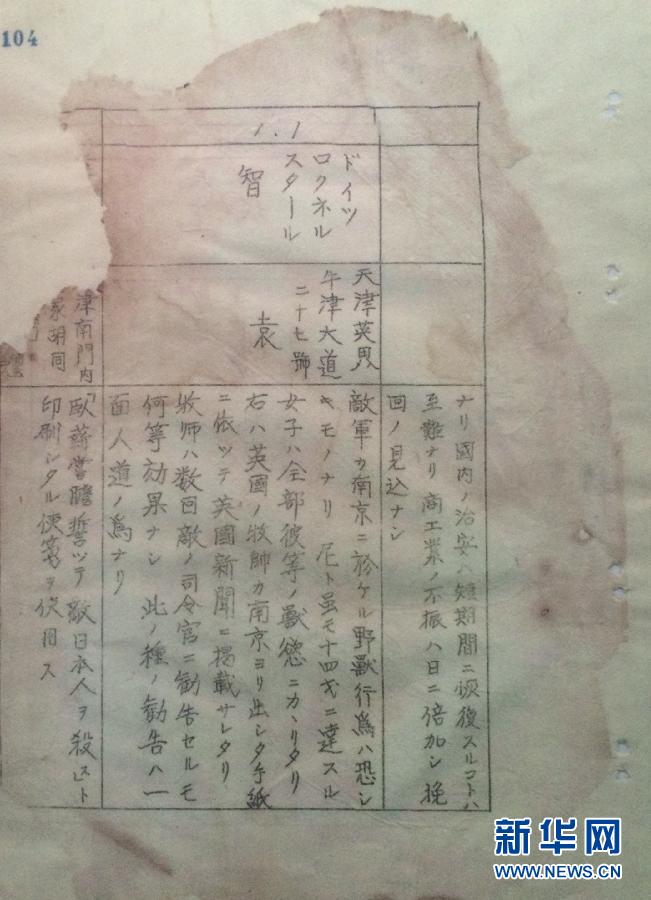 104
1.1
ドイツ
ロクネル
スタール
智
天津英界
牛津大道
二十七號
袁
津南門内
家胡同
ナリ國内ノ治安ハ短期間ニ恢復スルコトハ
至難ナリ商工業ノ不振ハ日ニ倍加シ挽
回ノ見込ナシ
敵軍カ南京ニ於ケル野獸行爲ハ恐シ
キモノナリ 尼ト虽モ十四才ニ達スル
女子ハ全部彼等ノ獸慾ニカヽリタリ
右ハ英國ノ牧師カ南京ヨリ出シタ手紙
ニ依ッテ英國新聞ニ掲載サレタリ
牧师ハ数回敵ノ司令官ニ勧告セルモ
何等効果ナシ 此ノ種ノ勧告ハ一
面人道ノ爲ナリ
「臥薪嘗膽誓ッテ敵日本人ヲ殺ス」ト
印刷シタル便箋ヲ使用ス
新华网
WWW.NEWS.CN